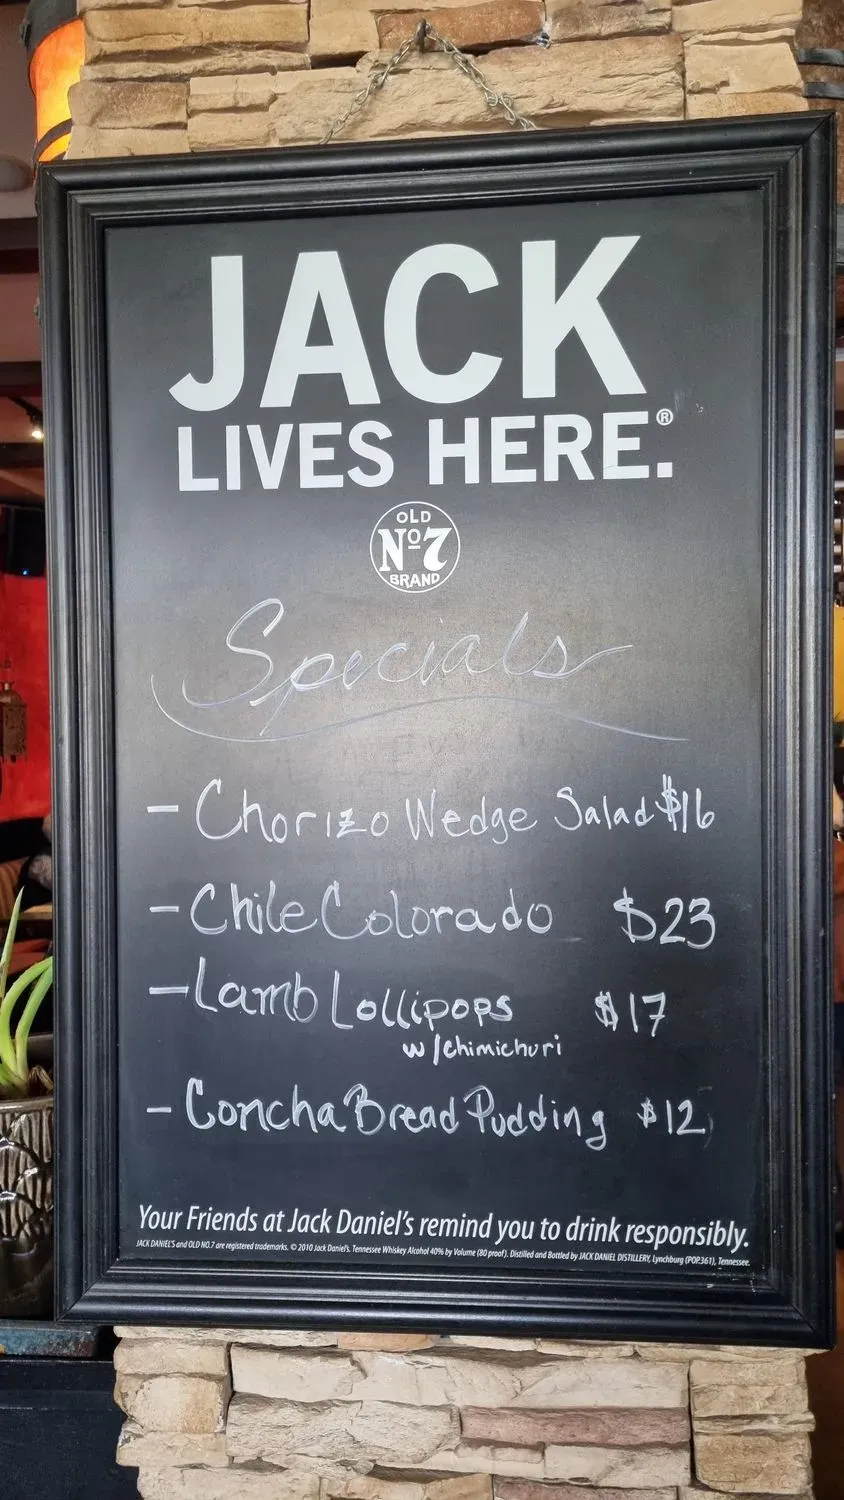 JACK
LIVES HERE.®
OLD
Nº7
BRAND
Specials
- Chorizo Wedge Salad $16
- Chile Colorado $23
- Lamb Lollipops $17
w/chimichuri
- Concha Bread Pudding $12
Your Friends at Jack Daniel's remind you to drink responsibly.
JACK DANIEL'S and OLD NO.7 are registered trademarks. © 2010 Jack Daniel's. Tennessee Whiskey Alcohol 40% by Volume (80 proof). Distilled and Bottled by JACK DANIEL DISTILLERY, Lynchburg (POP.361), Tennessee.